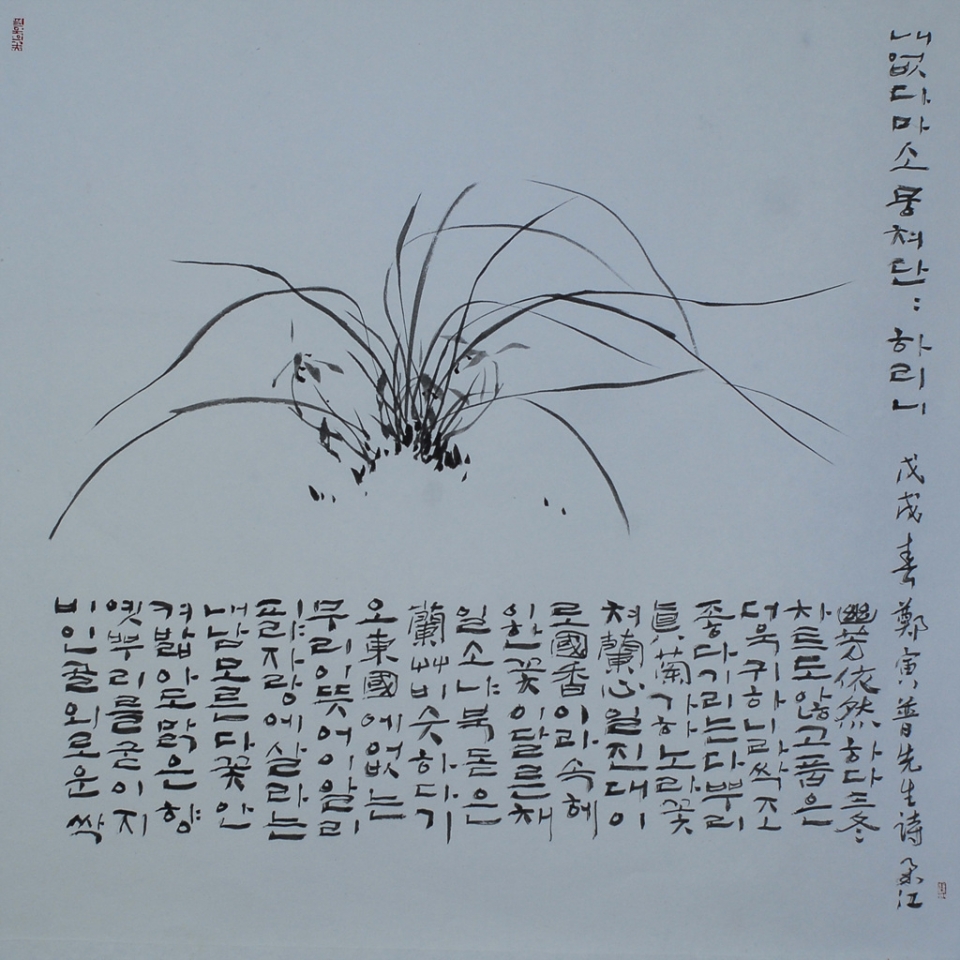 비인골외로운싹
옛뿌리를굳이지
켜밟아도맑은향
내남모른다꽃안
피랴자랑에살라는
무리이뜻어이알리
오東國에없는
蘭艸비슷하다기
일소냐북돋은
한꽃이달른채
로國香이라속헤
쳐蘭心일진대이
眞蘭가하노라꽃
좋다기리는다뿌리
더욱귀하니라싹조
차트도않고품은
幽芳依然하다三冬
내없다마소뭉쳐단::하리니 戊戌春 鄭寅普先生詩 江